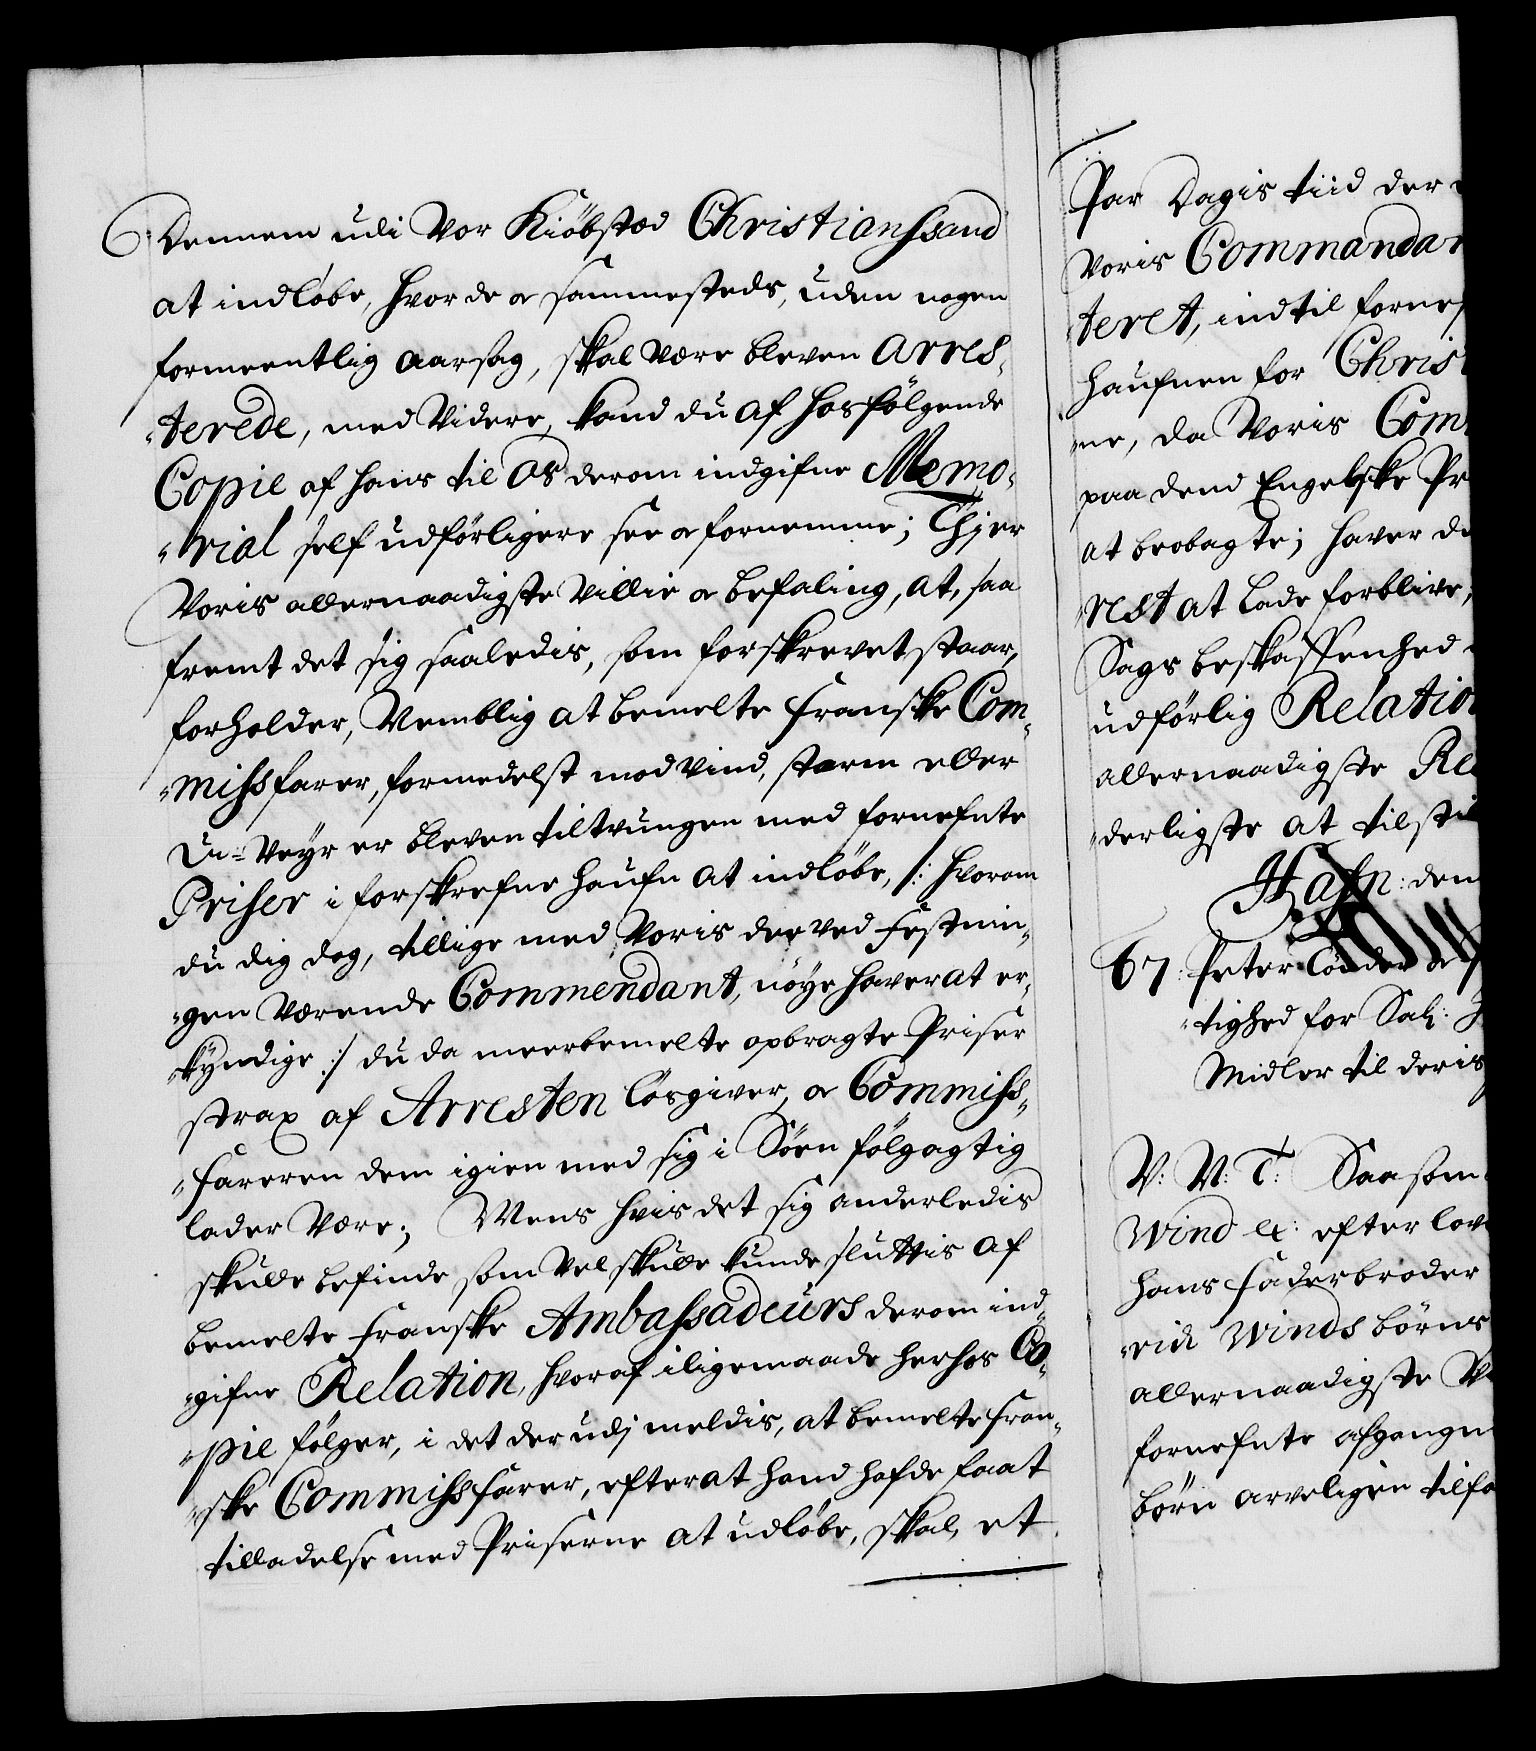 Dennem udi Vor Kiöbstæd Christianssand
at indløbe, hvor de og sammesteds, uden nogen
formeentlig aarsag, skal være bleven Arres-
-terede, med Videre, kand du af hosfölgende
Copie af hans til Os derom indgifne Memo-
-rial self udförligere see og fornemme; Thj er
Voris allernaadigste Villie og befaling, at, saa
fremt det sig saaledis, som forskrevet staar,
forholder, Nemblig at bemelte Franske Com-
-missfarer, formedelst modvind, storm eller
Un-Veyr er bleven tiltvungen med fornefnte
Priser i forskrefne Haufn at indlöbe, /: hvorom
du dig dog, tillige med Voris der ved Festnin-
-gen værende Commendant, nöye haver at er-
-kyndige :/ du da meerbemelte opbragte Priser
strax af Arresten løsgiver, og Commiss-
-fareren dem igien med sig i Söen fölgagtig
lader være; Mens hvis det sig anderledis
skulle befinde, som vel skulle kunde sluttis af
bemelte Franske Ambassadeurs derom ind-
-gifne Relation, hvoraf iligemaade herhos Co-
-pie fölger, i det der udj meldis, at bemelte Fran-
-ske Commissfarer, efter at hand hafde faaet
tilladelse med Priserne at udløbe, skal et
Par Dagis tiid der
Voris Commandan
teret, indtil fornef
Haufnen for Christ
-ne, da Voris Com
paa dend Engelske Pr
at beobagte; haver du
rest at lade forblive;
Sags beskaffenhed
udförlig Relation
allernaadigste Re
-derligste at tilsti
Hafn: den
67: Peter Tönder og
-tighed for Sal:
Midler til deris
V: U: T: Saasom
Wind etc: efter lov
hans Faderbroder
-rich Winds börns
allernaadigste
fornefnte afgangne
börn arveligen tilfa